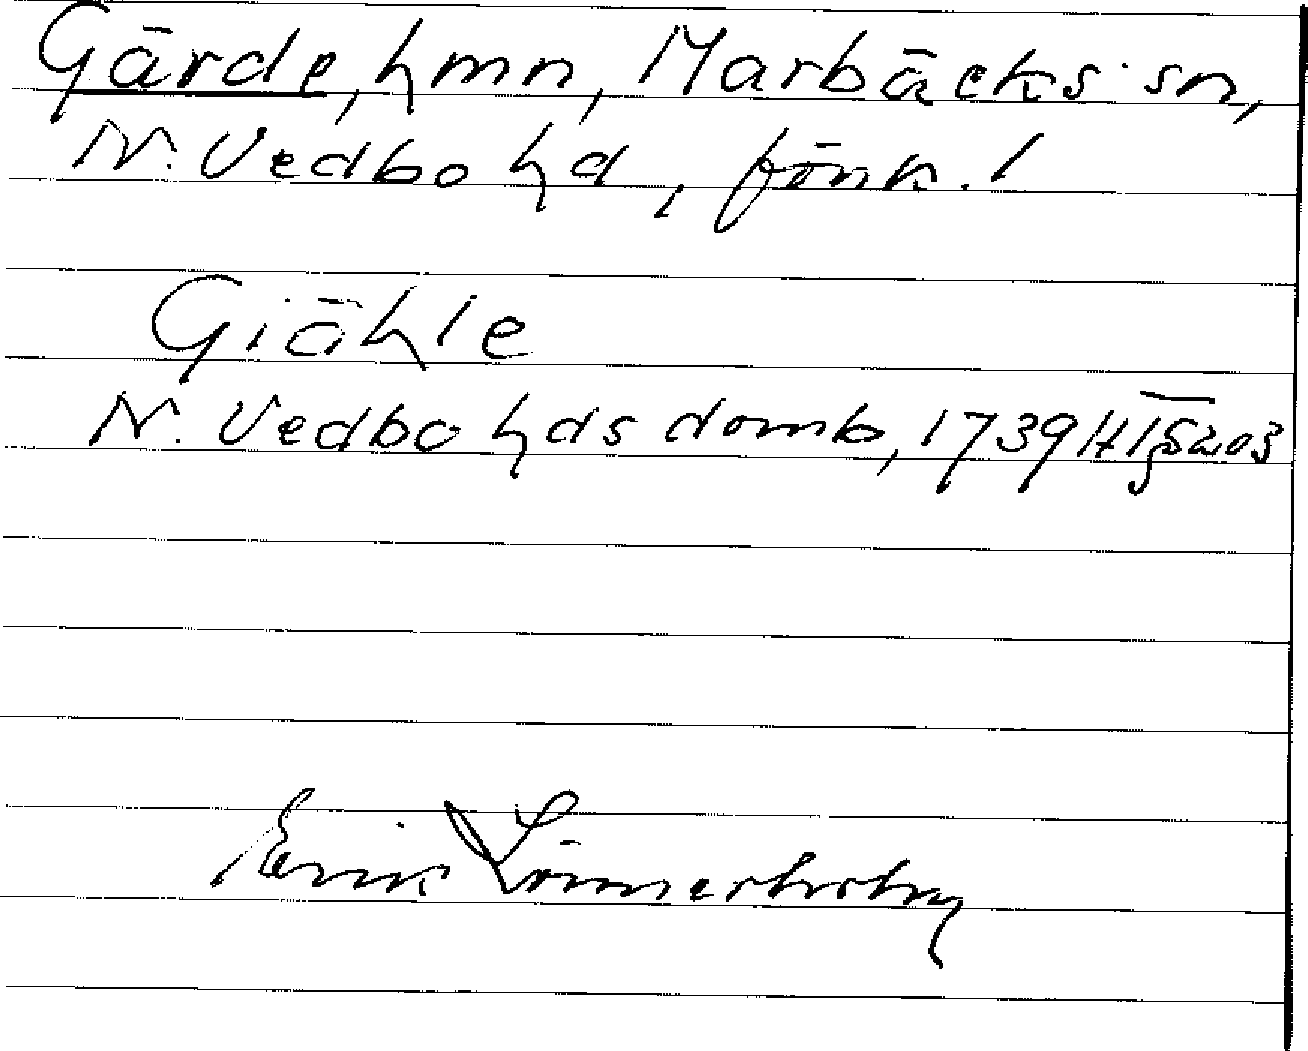 Gärde, hmn, Marbäcks sn,
N. Vedbo hd, Jönk. l
Giähle
N. Vedbo hds domb, 1739 Ht § 203
Erik Linnerholm